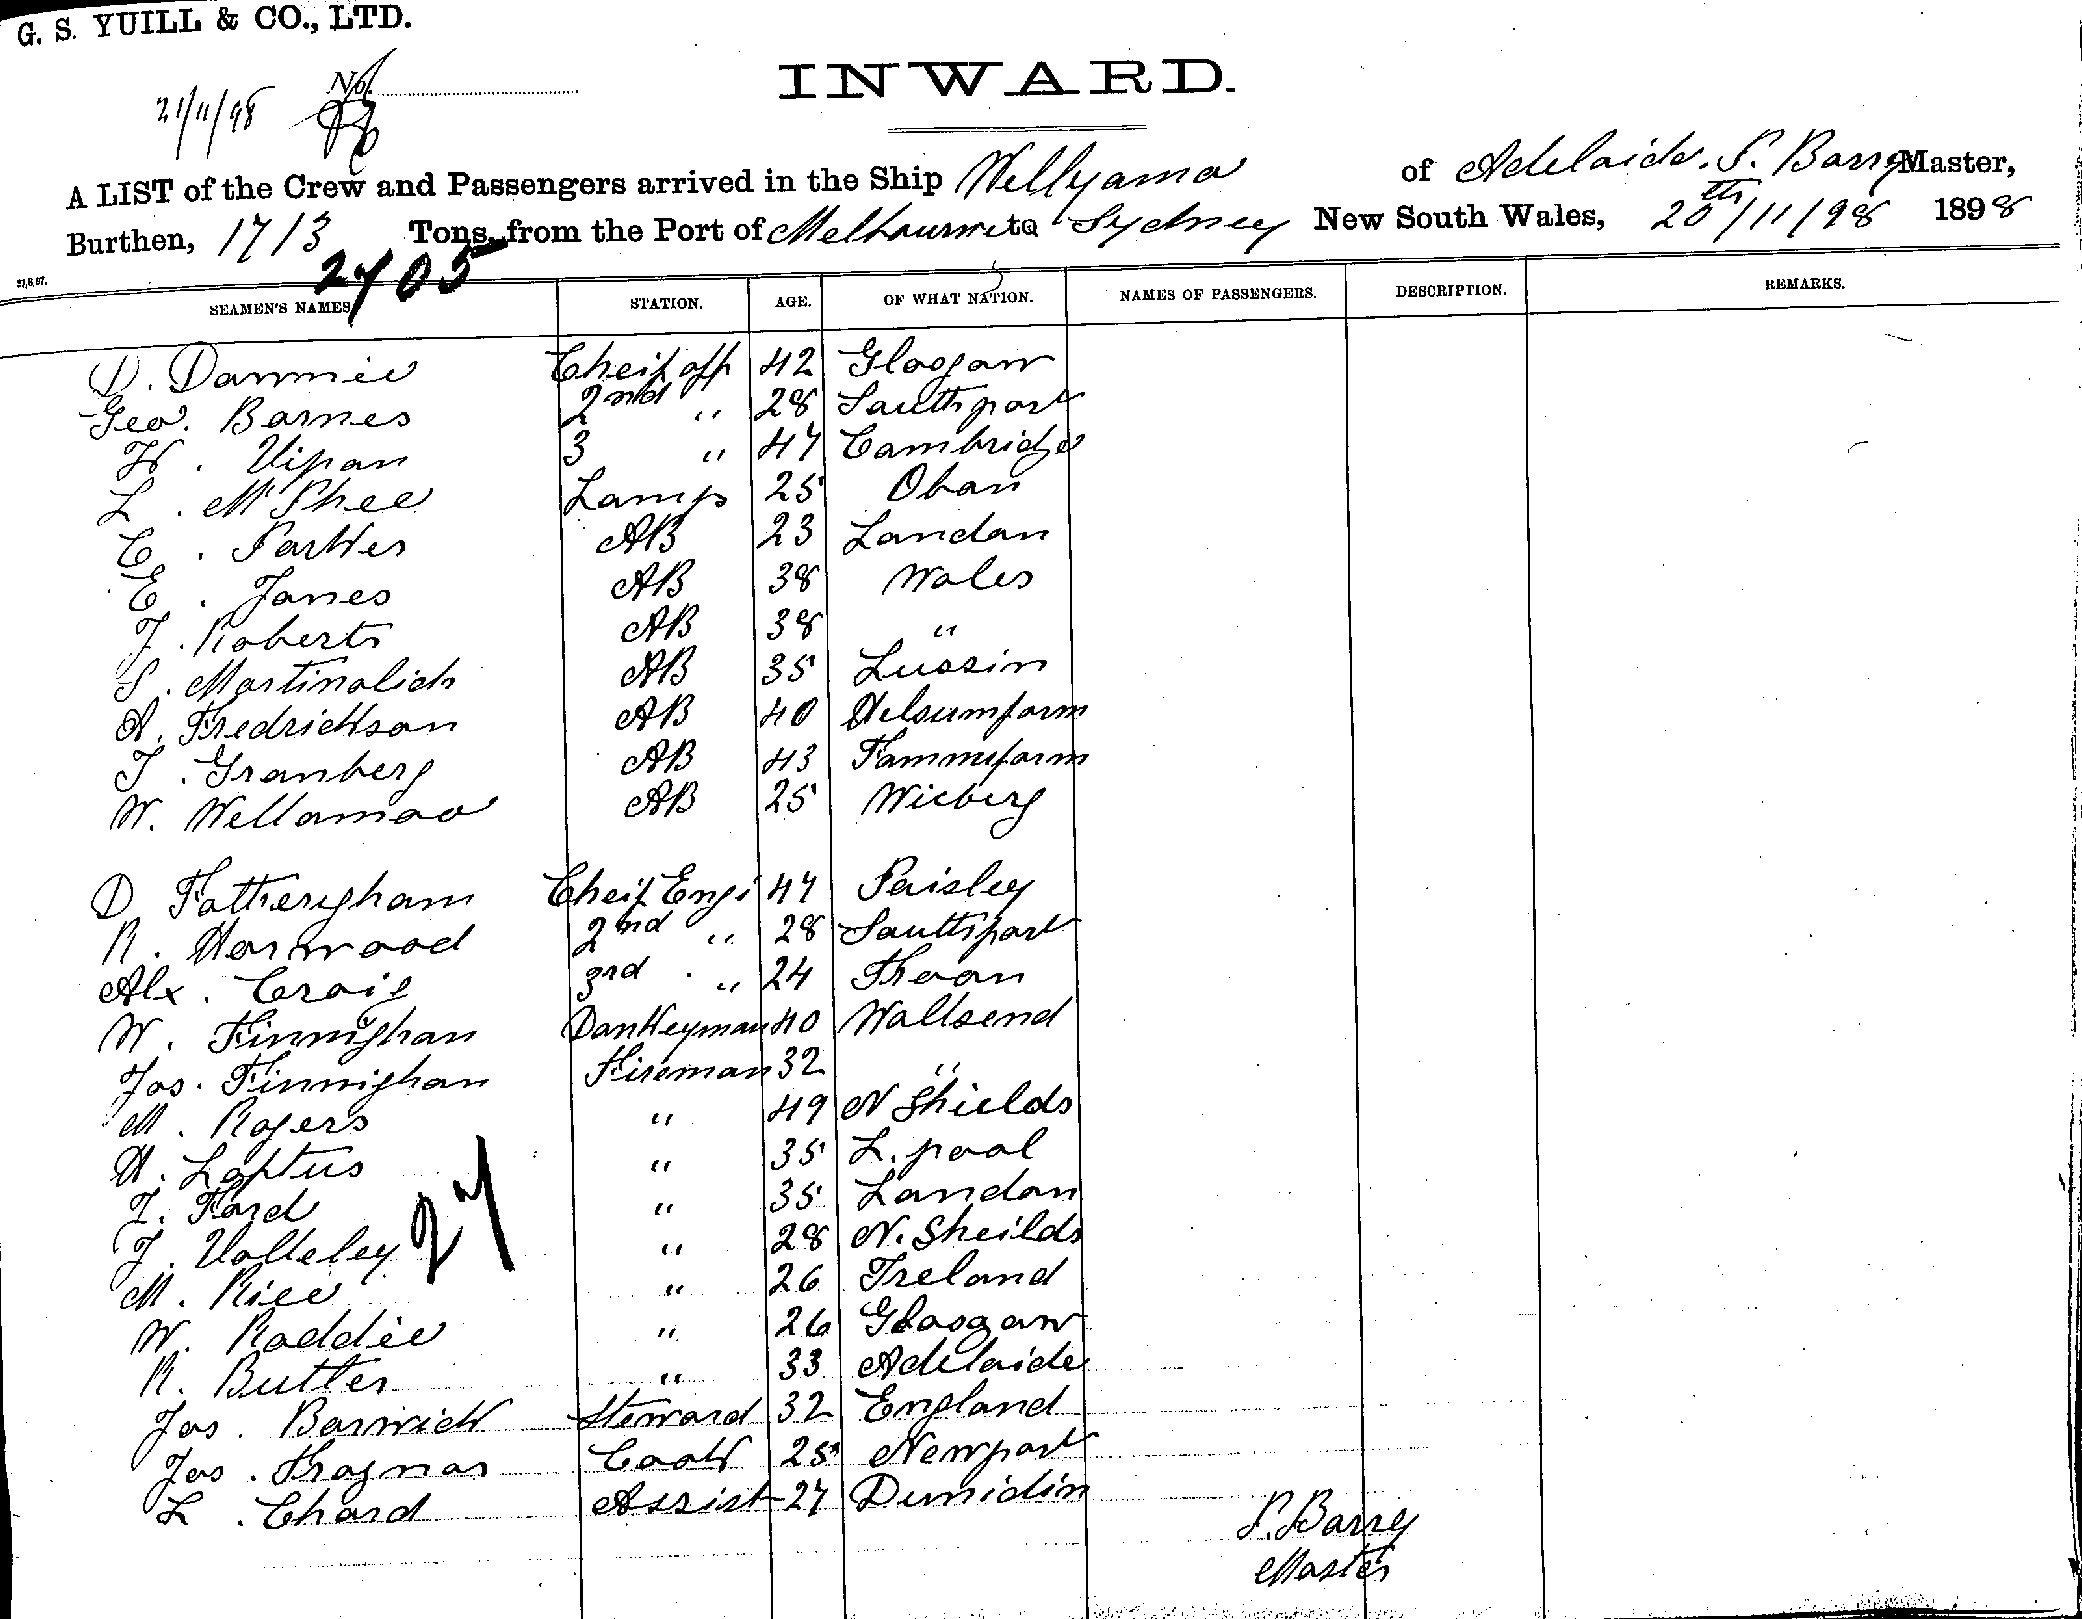 G. S. YUILL & CO., LTD.
21/11/98 No.
INWARD.
A LIST of the Crew and Passengers arrived in the Ship Wellyama of Adelaide. P. Barry Master,
Burthen, 1713 Tons, from the Port of Melbourne to Sydney New South Wales, 20th/11/98 1898
2705
27.8.97.
SEAMEN'S NAMES. STATION. AGE. OF WHAT NATION. NAMES OF PASSENGERS. DESCRIPTION. REMARKS.
D. Dammie Cheif off 42 Glasgow
Geo. Barnes 2nd " 28 Southport
H. Vipan 3 " 47 Cambridge
L. McPhee Lamps 25 Oban
C. Parkes AB 23 London
E. Jones AB 38 Wales
J. Roberts AB 38 "
S. Martinolich AB 35 Lussin
A. Fredrickson AB 40 Helsumform
J. Granberg AB 43 Fammeform
W. Wellamoo AB 25 Wieberg
D Fotheringham Cheif Engi 47 Paisley
R. Horwood 2nd " 28 Southport
Alx. Craig 3rd " 24 Troon
W. Finnighan Donkeyman 40 Wallsend
Jos. Finnighan Fireman 32 "
M. Rogers " 49 N Shields
H. Loftus " 35 L. pool
J. Ford " 35 London
J. Volleley " 28 N. Sheilds
27
M. Rice " 26 Ireland
W. Roddie " 26 Glasgow
R. Butler " 33 Adelaide
Jos. Barwick Steward 32 England
Jos. Trognor Cook 25 Newport
L. Chard Assist 27 Dunidin
P. Barry
Master